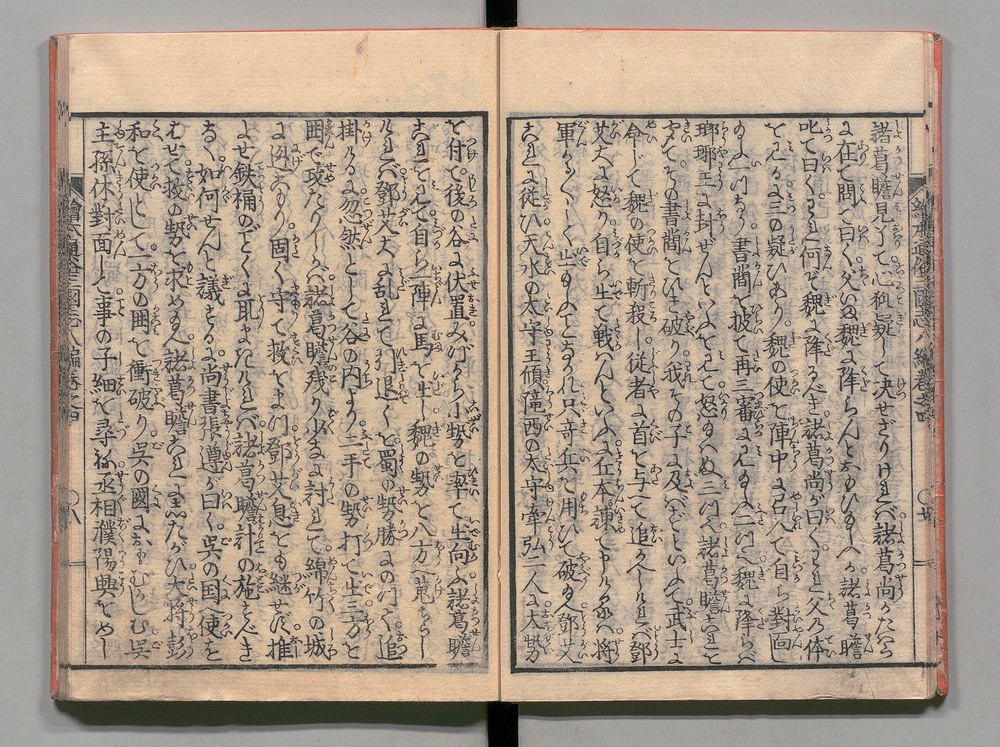 諸葛瞻見了て心狐疑して決せざりけれバ諸葛尚かたハら
に在て問て曰く父いぬ魏に降らんとおひ給ふへか諸葛瞻
叱て曰くわれ何ぞ魏に降るべき諸葛尚が曰くわれ父乃体
を見るに三の疑ひあり魏の使を陣中に召入て自ら對面し
書簡を披て再三審に見給ふ二ツ魏に降らバ
瑯琊王に封ぜんといふを見て怒給ハぬ三ツ諸葛瞻これを
その書簡をひき破り我その子に及バずといふて武士に
命じて魏の使を斬殺し従者に首を与て追かへしけれバ鄧
艾大に怒り自ら出て戦ハんといふ丘本諌て申けるハ将
軍かろ〴〵しく出給ふことなかれ只奇兵を用ひて破り給へ鄧艾
これに従ひ天水の太守王頎隴西の太守牽弘二人に大勢
を付て後の谷に伏置みづから小勢を率て出向ふ諸葛瞻
これを見て自ら一陣に馬を出し魏の勢を八方に蒐ちらし
けれバ鄧艾大に乱れて引退く蜀の勢勝にのつて追
掛けるに忽然として谷の内より二手の勢打て出三方を
囲で攻たりしかバ諸葛瞻残り少なに討れて綿竹の城
に逃入り固く守て救をまつ鄧艾息をも継せず推
よせ鉄桶のごとくに取まきけれバ諸葛瞻計の施すべき
なし如何せんと議するに尚書張遵が曰く呉の国へ使を
はせて救の勢を求め給へ諸葛瞻これに従ひ大将彭
和を使として一方の囲を衝破り呉の國におもむかしむ呉
主孫休對面して事の子細を尋ね丞相濮陽興をめし
繪本通俗三國志八編巻之四
繪本通俗三國志八編巻之四